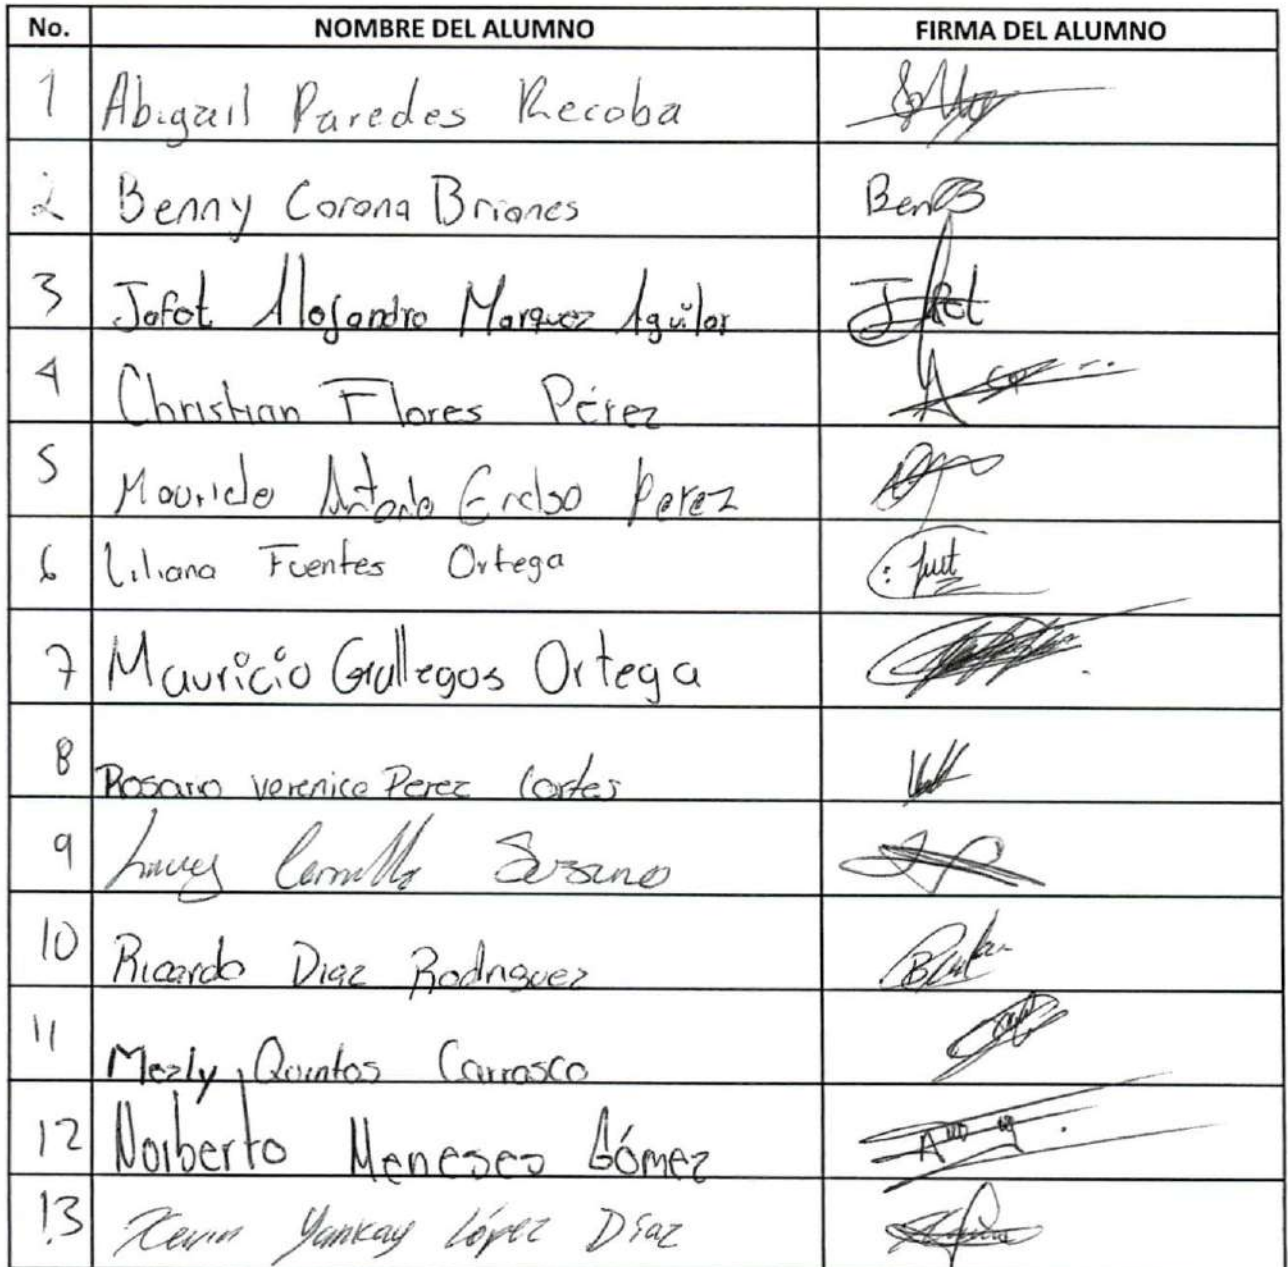 No. NOMBRE DEL ALUMNO FIRMA DEL ALUMNO
1 Abigail Paredes Recoba
2 Benny Corona Briones Ben
3 Jafot Alejandro Marquez Aguilar Jafot
4 Christian Flores Pérez
5 Mauricio Antonio Perez
6 Liliana Fuentes Ortega
7 Mauricio Gallegos Ortega
8 Rosario verenice Perez Cortes
9
10 Ricardo Diaz Rodriguez
11 Mezly Quintos Carrasco
12 Norberto Meneses Gómez
13 Kevin Yankay López Díaz